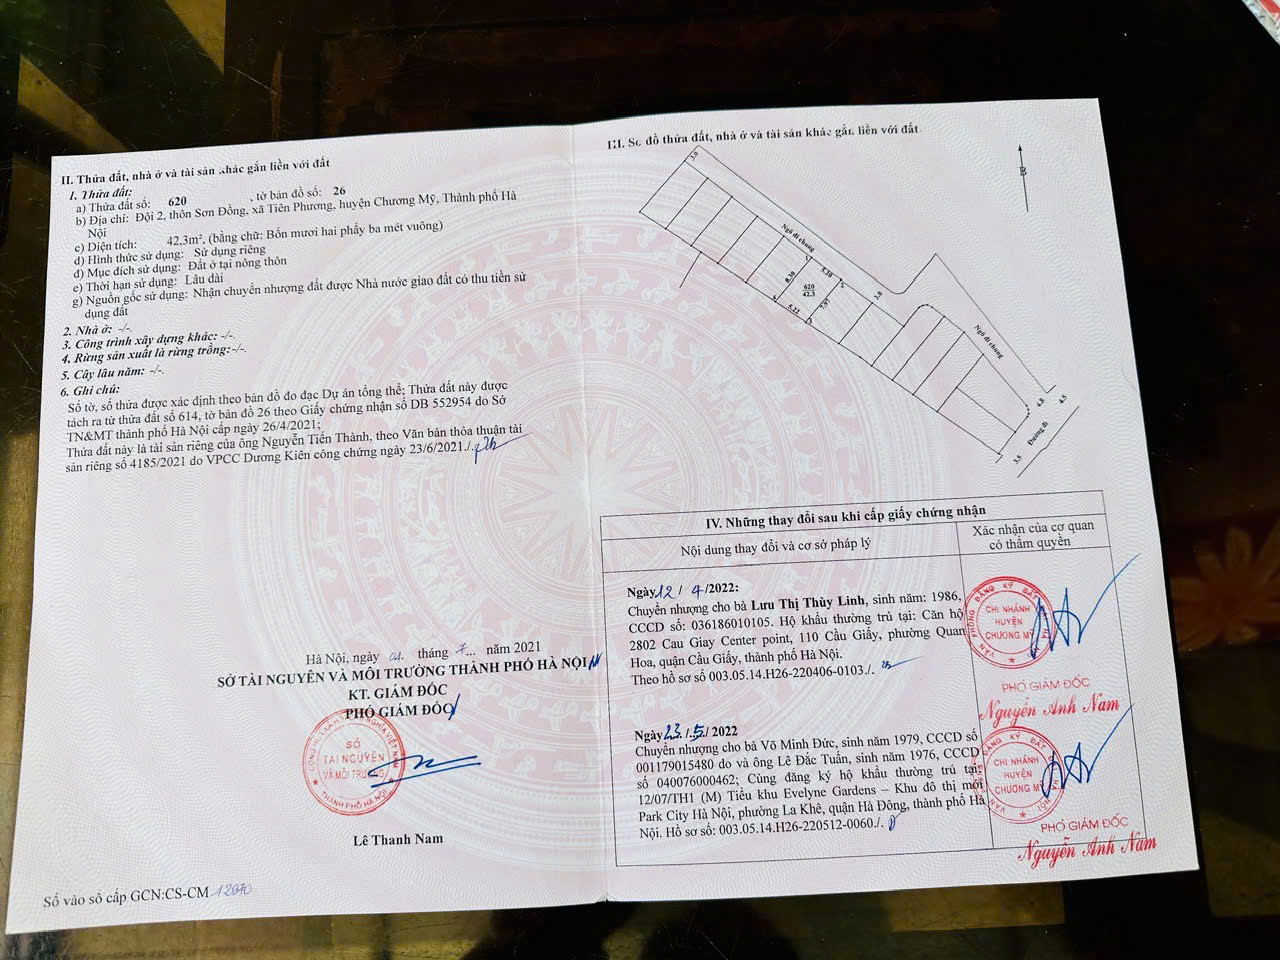 II. Thửa đất, nhà ở và tài sản khác gắn liền với đất
1. Thửa đất:
a) Thửa đất số: 620 , tờ bản đồ số: 26
b) Địa chỉ: Đội 2, thôn Sơn Đồng, xã Tiên Phương, huyện Chương Mỹ, Thành phố Hà
Nội
c) Diện tích: 42,3m², (bằng chữ: Bốn mươi hai phẩy ba mét vuông)
d) Hình thức sử dụng: Sử dụng riêng
đ) Mục đích sử dụng: Đất ở tại nông thôn
e) Thời hạn sử dụng: Lâu dài
g) Nguồn gốc sử dụng: Nhận chuyển nhượng đất được Nhà nước giao đất có thu tiền sử
dụng đất
2. Nhà ở: -/-.
3. Công trình xây dựng khác: -/-.
4. Rừng sản xuất là rừng trồng:-/-.
5. Cây lâu năm: -/-.
6. Ghi chú:
Số tờ, số thửa được xác định theo bản đồ đo đạc Dự án tổng thể; Thửa đất này được
tách ra từ thửa đất số 614, tờ bản đồ 26 theo Giấy chứng nhận số DB 552954 do Sở
TN&MT thành phố Hà Nội cấp ngày 26/4/2021;
Thửa đất này là tài sản riêng của ông Nguyễn Tiến Thành, theo Văn bản thỏa thuận tài
sản riêng số 4185/2021 do VPCC Dương Kiên công chứng ngày 23/6/2021./.
Hà Nội, ngày 01. tháng 7... năm 2021
SỞ TÀI NGUYÊN VÀ MÔI TRƯỜNG THÀNH PHỐ HÀ NỘI
KT. GIÁM ĐỐC
PHÓ GIÁM ĐỐC
SỞ
TÀI NGUYÊN
VÀ MÔI TRƯỜNG
THÀNH PHỐ HÀ NỘI
Lê Thanh Nam
Số vào sổ cấp GCN:CS-CM 12070
III. Sơ đồ thửa đất, nhà ở và tài sản khác gắn liền với đất
3.0
B
Ngõ đi chung
8.30
5.20
620
42.3
7.97
5.22
3.0
Ngõ đi chung
4.0
4.5
Đường đi
3.5
IV. Những thay đổi sau khi cấp giấy chứng nhận
Nội dung thay đổi và cơ sở pháp lý
Xác nhận của cơ quan
có thẩm quyền
Ngày 12 / 4 /2022:
Chuyển nhượng cho bà Lưu Thị Thùy Linh, sinh năm: 1986,
CCCD số: 036186010105. Hộ khẩu thường trú tại: Căn hộ
2802 Cau Giay Center point, 110 Cầu Giấy, phường Quan
Hoa, quận Cầu Giấy, thành phố Hà Nội.
Theo hồ sơ số 003.05.14.H26-220406-0103./.
VĂN PHÒNG ĐĂNG KÝ ĐẤT ĐAI HÀ NỘI
CHI NHÁNH
HUYỆN
CHƯƠNG MỸ
PHÓ GIÁM ĐỐC
Nguyễn Anh Nam
Ngày 23. / .5. / 2022
Chuyển nhượng cho bà Võ Minh Đức, sinh năm 1979, CCCD số
001179015480 do và ông Lê Đắc Tuấn, sinh năm 1976, CCCD
số 040076000462; Cùng đăng ký hộ khẩu thường trú tại:
12/07/TH1 (M) Tiểu khu Evelyne Gardens – Khu đô thị mới
Park City Hà Nội, phường La Khê, quận Hà Đông, thành phố Hà
Nội. Hồ sơ số: 003.05.14.H26-220512-0060./.
CHI NHÁNH
HUYỆN
CHƯƠNG MỸ
PHÓ GIÁM ĐỐC
Nguyễn Anh Nam